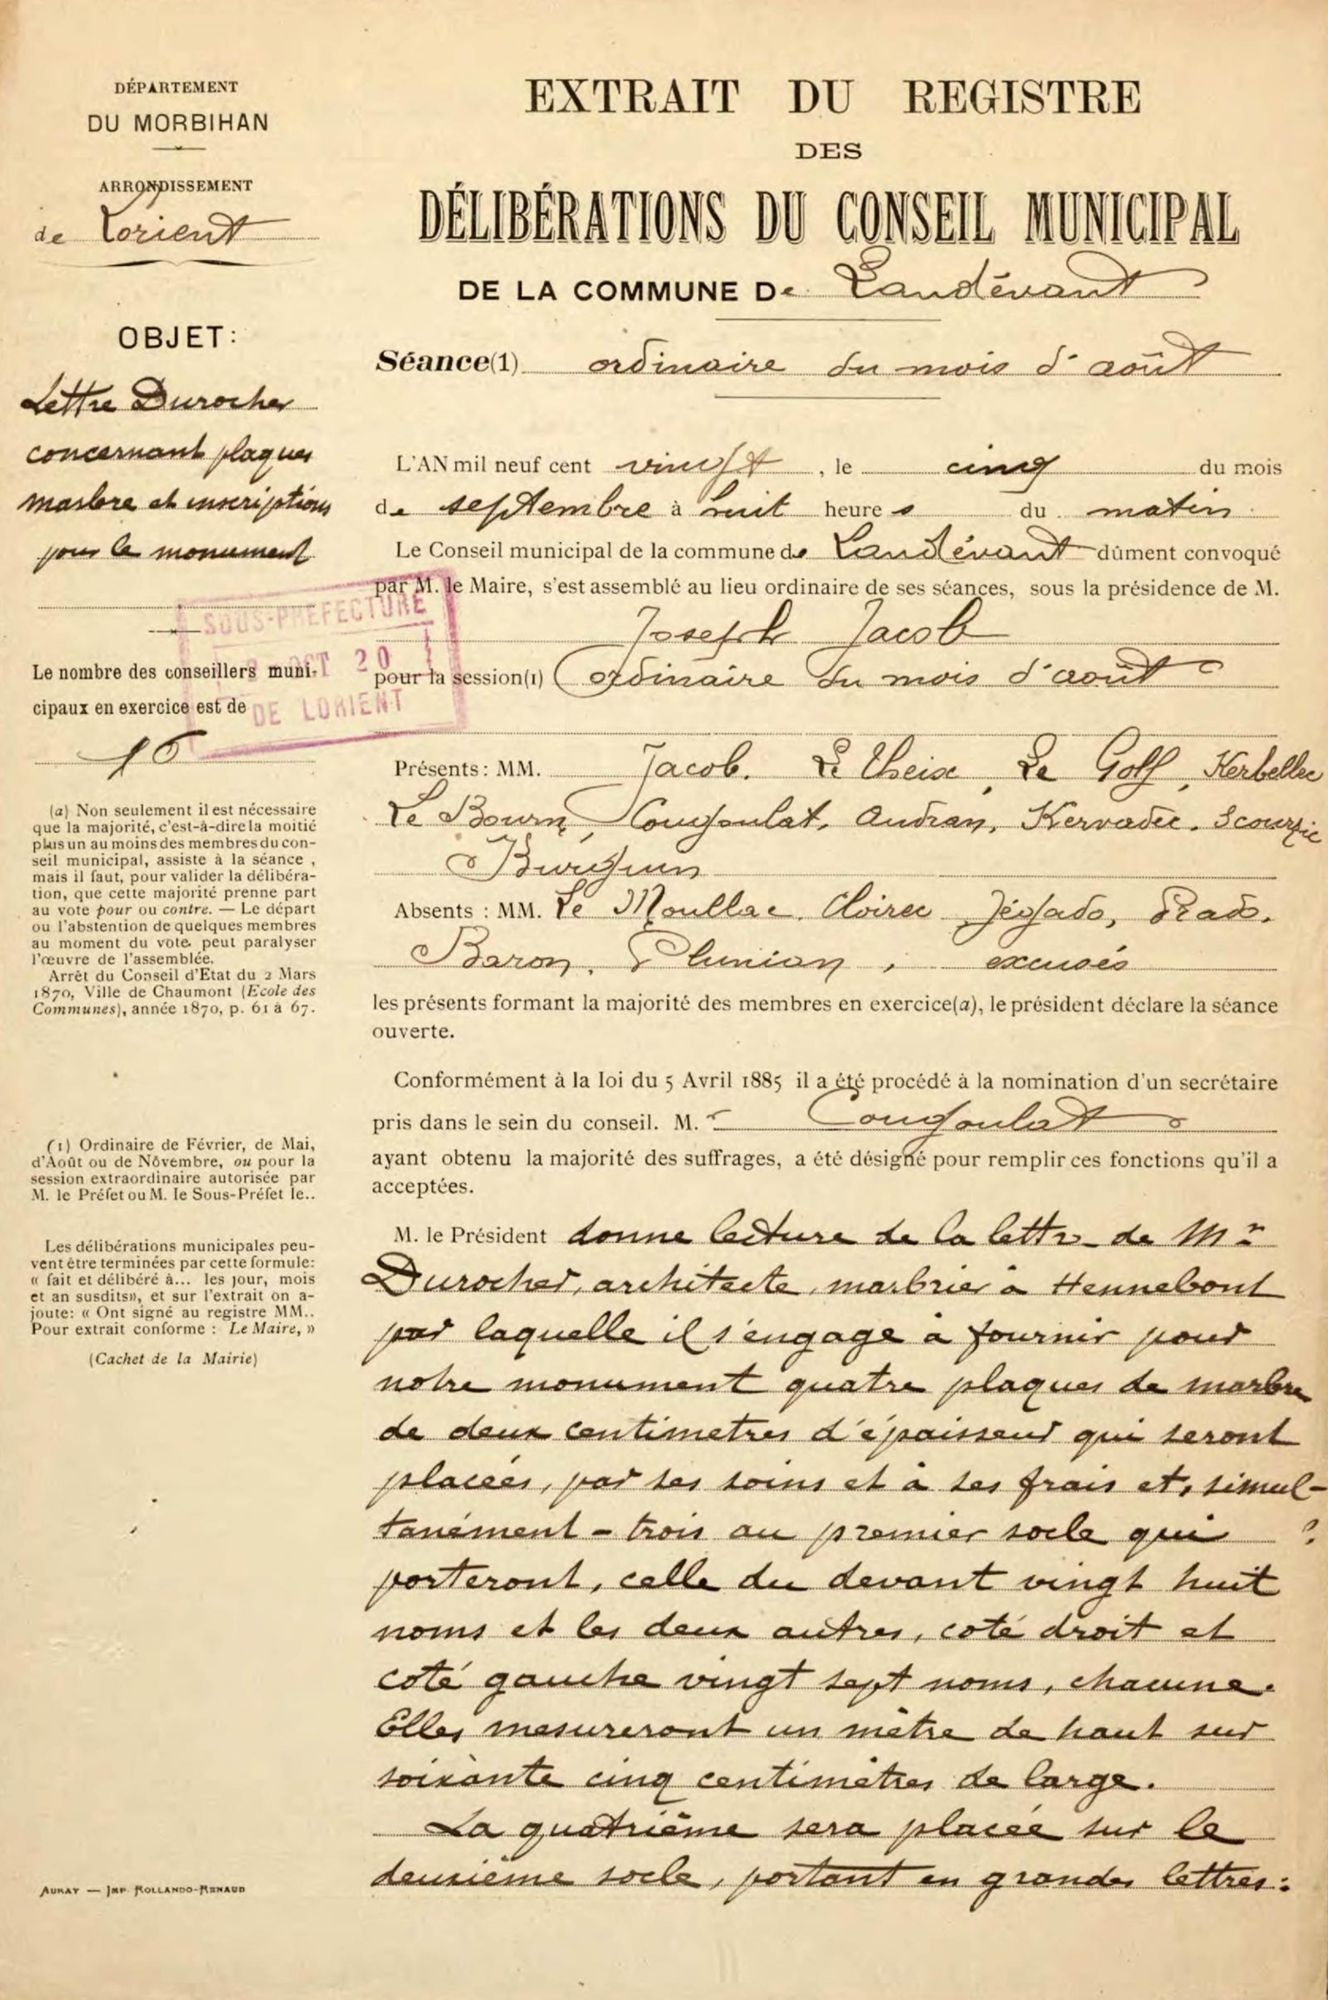 DÉPARTEMENT
DU MORBIHAN
ARRONDISSEMENT
de Lorient
OBJET:
Lettre Durocher
concernant plaques
marbre et inscriptions
pour le monument
SOUS-PRÉFECTURE
OCT 20
DE LORIENT
Le nombre des conseillers muni-
cipaux en exercice est de
16
(a) Non seulement il est nécessaire
que la majorité, c'est-à-dire la moitié
plus un au moins des membres du con-
seil municipal, assiste à la séance,
mais il faut, pour valider la délibéra-
tion, que cette majorité prenne part
au vote pour ou contre. — Le départ
ou l'abstention de quelques membres
au moment du vote peut paralyser
l'œuvre de l'assemblée.
Arrêt du Conseil d'Etat du 2 Mars
1870, Ville de Chaumont (Ecole des
Communes), année 1870, p. 61 à 67.
(1) Ordinaire de Février, de Mai,
d'Août ou de Nôvembre, ou pour la
session extraordinaire autorisée par
M. le Préfet ou M. le Sous-Préfet le..
Les délibérations municipales peu-
vent être terminées par cette formule:
« fait et délibéré à... les jour, mois
et an susdits», et sur l'extrait on a-
joute: « Ont signé au registre MM..
Pour extrait conforme : Le Maire, »
(Cachet de la Mairie)
AURAY — IMP. ROLLANDO-RENAUD
EXTRAIT DU REGISTRE
DES
DÉLIBÉRATIONS DU CONSEIL MUNICIPAL
DE LA COMMUNE De Landévant
Séance(1) ordinaire du mois d'août
L'AN mil neuf cent vingt, le cinq du mois
de septembre à huit heures du matin.
Le Conseil municipal de la commune de Landévant dûment convoqué
par M. le Maire, s'est assemblé au lieu ordinaire de ses séances, sous la présidence de M.
Joseph Jacob
pour la session(1) ordinaire du mois d'août
Présents: MM. Jacob. Le Theix, Le Golf, Kerbellec
Le Bourn, Cougoulat, Audran, Kervadec. Scourzic
Burguin
Absents : MM. Le Moullac. Cloirec Jégado, Prado.
Baron, Plunian, excusés
les présents formant la majorité des membres en exercice(a), le président déclare la séance
ouverte.
Conformément à la loi du 5 Avril 1885 il a été procédé à la nomination d'un secrétaire
pris dans le sein du conseil. M.r Cougoulat
ayant obtenu la majorité des suffrages, a été désigné pour remplir ces fonctions qu'il a
acceptées.
M. le Président donne lecture de la lettre de Mr
Durocher, architecte, marbrier à Hennebont
par laquelle il s'engage à fournir pour
notre monument quatre plaques de marbre
de deux centimetres d'épaisseur qui seront
placées, par ses soins et à ses frais et, simul-
tanément - trois au premier socle qui ?
porteront, celle du devant vingt huit
noms et les deux autres, coté droit et
coté gauche vingt sept noms, chacune.
Elles mesureront un mètre de haut sur
soixante cinq centimètres de large.
La quatrième sera placée sur le
deuxième socle, portant en grandes lettres: